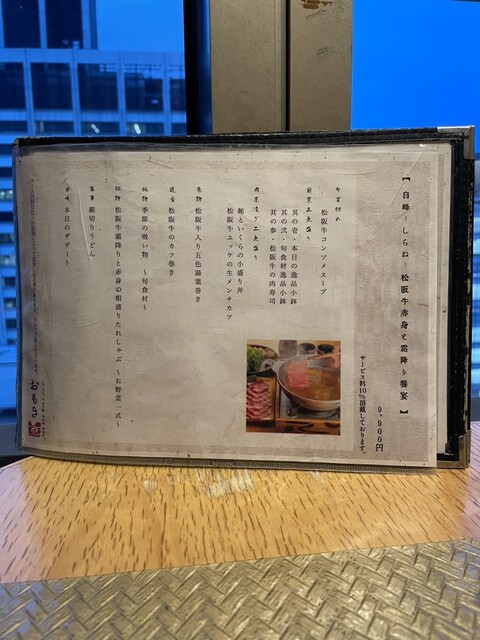 【白峰 - しらね - 松阪牛赤身と霜降り饗宴】
9,900円
サービス料10%頂戴しております。
松阪牛コンソメスープ
前菜三点盛り
其の壱・本日の逸品小鉢
其の弐・旬食材逸品小鉢
其の参・松阪牛の肉寿司
二点盛り
鮪といくらの小盛り丼
松阪牛ユッケの生メンチカツ
巻物 松阪牛入り五色湯葉巻き
松阪牛のカツ巻き
季節の吸い物 〜旬食材〜
鍋物 松阪牛霜降りと赤身の相盛りたれしゃぶ 〜お野菜一式〜
食事 細切りうどん
甘味 本日のデザート
おもき